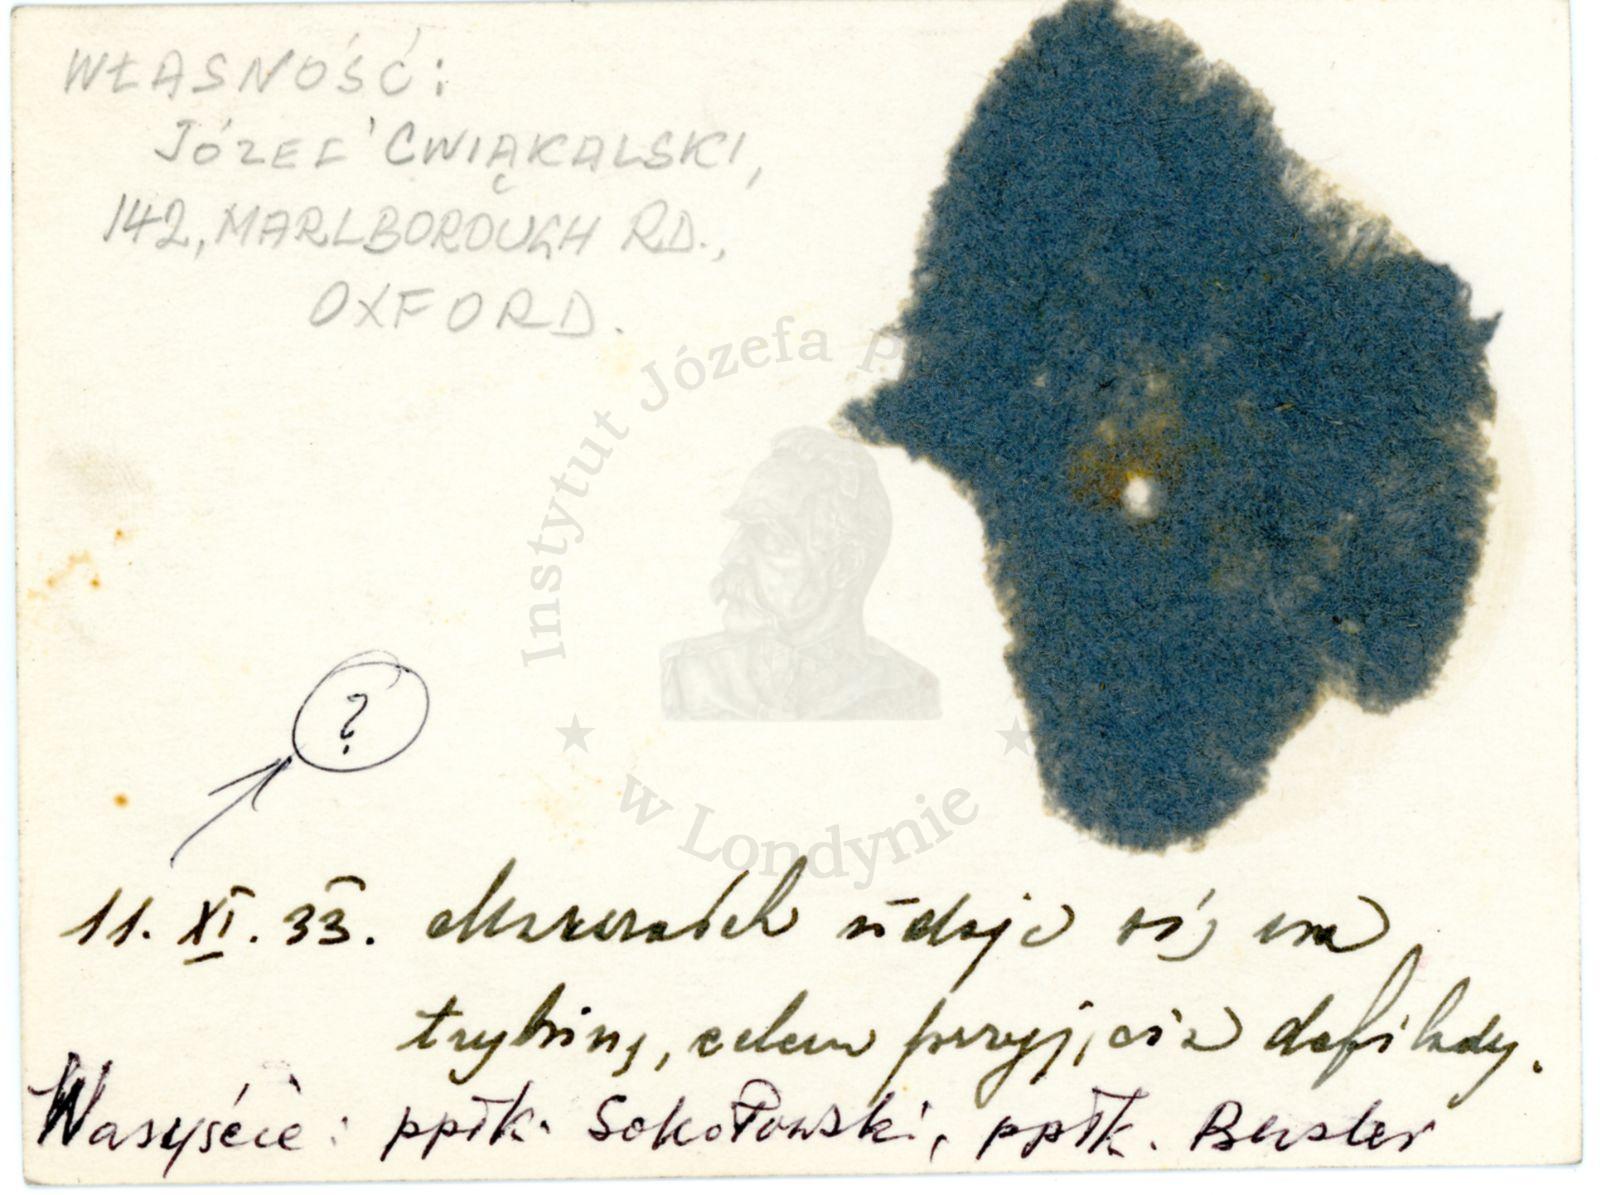 WŁASNOŚĆ:
JÓZEF ĆWIĄKALSKI,
142, MARLBOROUGH RD.,
OXFORD.
Instytut Józefa
w Londynie
?
11. XI. 33. Marszałek udaje się na
trybunę, celem przyjęcia defilady.
W asyście: ppłk. Sokołowski, ppłk. Busler